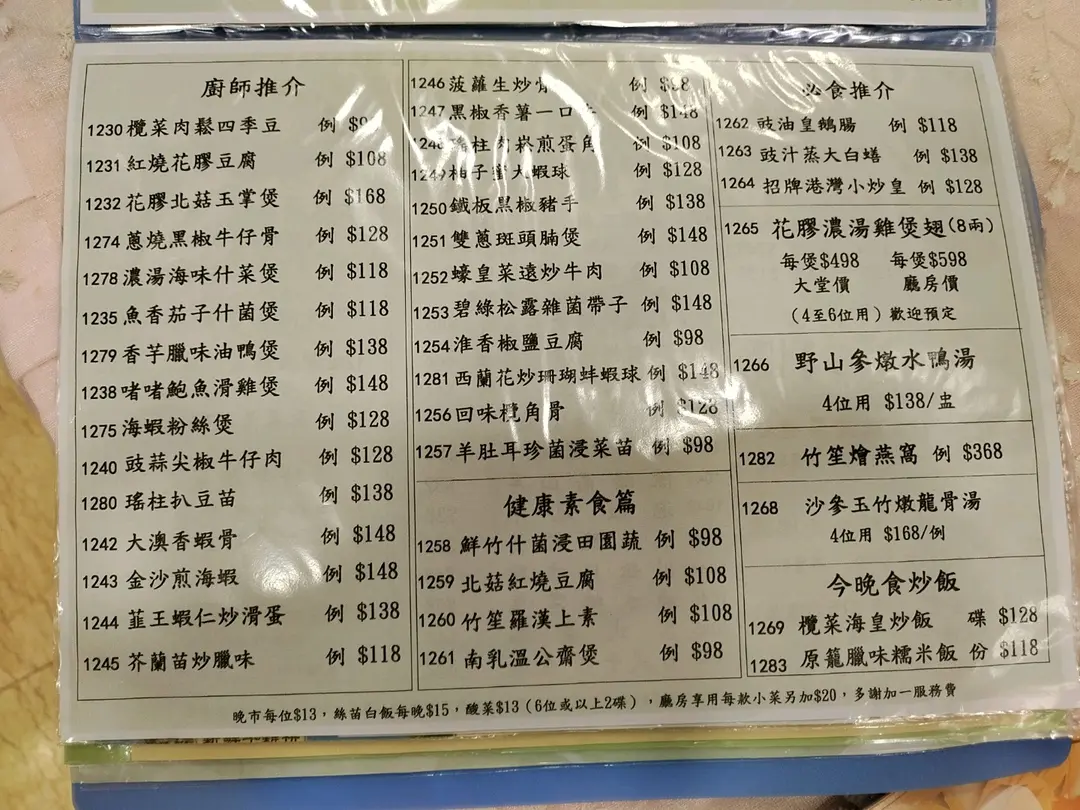 廚師推介
1230 欖菜肉鬆四季豆 例
1231 紅燒花膠豆腐 例 $108
1232 花膠北菇玉掌煲 例 $168
1274 蔥燒黑椒牛仔骨 例 $128
1278 濃湯海味什菜煲 例 $118
1235 魚香茄子什菌煲 例 $118
1279 香芋臘味油鴨煲 例 $138
1238 啫啫鮑魚滑雞煲 例 $148
1275 海蝦粉絲煲 例 $128
1240 豉蒜尖椒牛仔肉 例 $128
1280 瑤柱扒豆苗 例 $138
1242 大澳香蝦骨 例 $148
1243 金沙煎海蝦 例 $148
1244 韮王蝦仁炒滑蛋 例 $138
1245 芥蘭苗炒臘味 例 $118
1246 菠蘿生炒骨 例
1247 黑椒香薯一口牛 例 $148
1248 瑤柱肉崧煎蛋角 例 $108
1249 柚子蜜大蝦球 例 $128
1250 鐵板黑椒豬手 例 $138
1251 雙蔥斑頭腩煲 例 $148
1252 蠔皇菜遠炒牛肉 例 $108
1253 碧綠松露雜菌帶子 例 $148
1254 淮香椒鹽豆腐 例 $98
1281 西蘭花炒珊瑚蚌蝦球 例 $148
1256 回味欖角骨 例 $128
1257 羊肚耳珍菌浸菜苗 例 $98
健康素食篇
1258 鮮竹什菌浸田園蔬 例 $98
1259 北菇紅燒豆腐 例 $108
1260 竹笙羅漢上素 例 $108
1261 南乳溫公齋煲 例 $98
必食推介
1262 豉油皇鵝腸 例 $118
1263 豉汁蒸大白鱔 例 $138
1264 招牌港灣小炒皇 例 $128
1265 花膠濃湯雞煲翅(8兩)
每煲$498 每煲$598
大堂價 廳房價
(4至6位用)歡迎預定
1266 野山參燉水鴨湯
4位用 $138/盅
1282 竹笙燴燕窩 例 $368
1268 沙參玉竹燉龍骨湯
4位用 $168/例
今晚食炒飯
1269 欖菜海皇炒飯 碟 $128
1283 原籠臘味糯米飯 份 $118
晚市每位$13，絲苗白飯每晚$15，酸菜$13(6位或以上2碟)，廳房享用每款小菜另加$20，多謝加一服務費